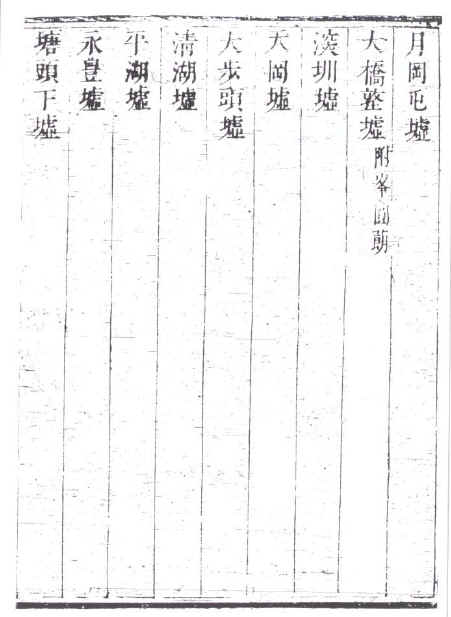 月岡屯墟
大橋墪墟 附
深圳墟
天岡墟
大步頭墟
清湖墟
平湖墟
永豊墟
塘頭下墟